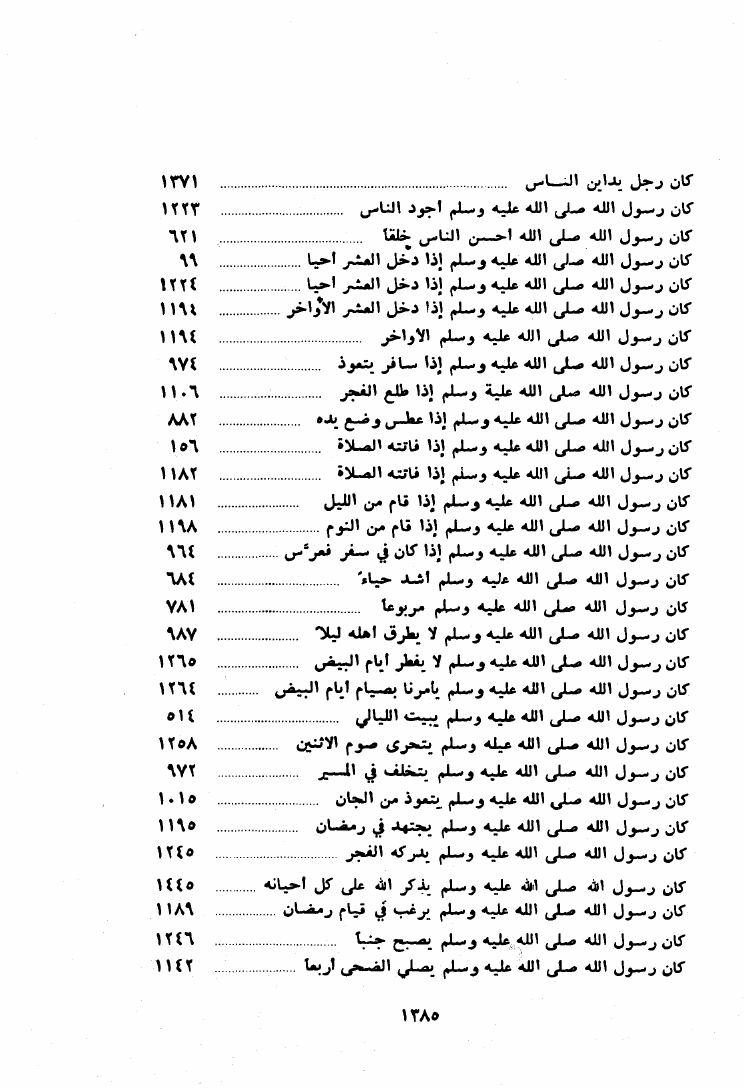 كان رجل يداين الناس ........ ١٣٧١
كان رسول الله صلى الله عليه وسلم أجود الناس ........ ١٢٢٣
كان رسول الله صلى الله عليه وسلم أحسن الناس خلقاً ........ ٦٢١
كان رسول الله صلى الله عليه وسلم إذا دخل العشر أحيا ........ ٩٩
كان رسول الله صلى الله عليه وسلم إذا دخل العشر أحيا ........ ١٢٢٤
كان رسول الله صلى الله عليه وسلم إذا دخل العشر الأواخر ........ ١١٩٤
كان رسول الله صلى الله عليه وسلم الأواخر ........ ١١٩٤
كان رسول الله صلى الله عليه وسلم إذا سافر يتعوذ ........ ٩٧٤
كان رسول الله صلى الله علية وسلم إذا طلع الفجر ........ ١١٠٦
كان رسول الله صلى الله عليه وسلم إذا عطس وضع يده ........ ٨٨٢
كان رسول الله صلى الله عليه وسلم إذا فاتته الصلاة ........ ١٥٦
كان رسول الله صلى الله عليه وسلم إذا فاتته الصلاة ........ ١١٨٢
كان رسول الله صلى الله عليه وسلم إذا قام من الليل ........ ١١٨١
كان رسول الله صلى الله عليه وسلم إذا قام من النوم ........ ١١٩٨
كان رسول الله صلى الله عليه وسلم إذا كان في سفر فعرَّس ........ ٩٦٤
كان رسول الله صلى الله عليه وسلم أشد حياءً ........ ٦٨٤
كان رسول الله صلى الله عليه وسلم مربوعاً ........ ٧٨١
كان رسول الله صلى الله عليه وسلم لا يطرق أهله ليلاً ........ ٩٨٧
كان رسول الله صلى الله عليه وسلم لا يفطر أيام البيض ........ ١٢٦٥
كان رسول الله صلى الله عليه وسلم يأمرنا بصيام أيام البيض ........ ١٢٦٤
كان رسول الله صلى الله عليه وسلم يبيت الليالي ........ ٥١٤
كان رسول الله صلى الله عيله وسلم يتحرى صوم الاثنين ........ ١٢٥٨
كان رسول الله صلى الله عليه وسلم يتخلف في المسير ........ ٩٧٢
كان رسول الله صلى الله عليه وسلم يتعوذ من الجان ........ ١٠١٥
كان رسول الله صلى الله عليه وسلم يجتهد في رمضان ........ ١١٩٥
كان رسول الله صلى الله عليه وسلم يدركه الفجر ........ ١٢٤٥
كان رسول الله صلى الله عليه وسلم يذكر الله على كل أحيانه ........ ١٤٤٥
كان رسول الله صلى الله عليه وسلم يرغب في قيام رمضان ........ ١١٨٩
كان رسول الله صلى الله عليه وسلم يصبح جنباً ........ ١٢٤٦
كان رسول الله صلى الله عليه وسلم يصلي الضحى أربعاً ........ ١١٤٢
١٣٨٥